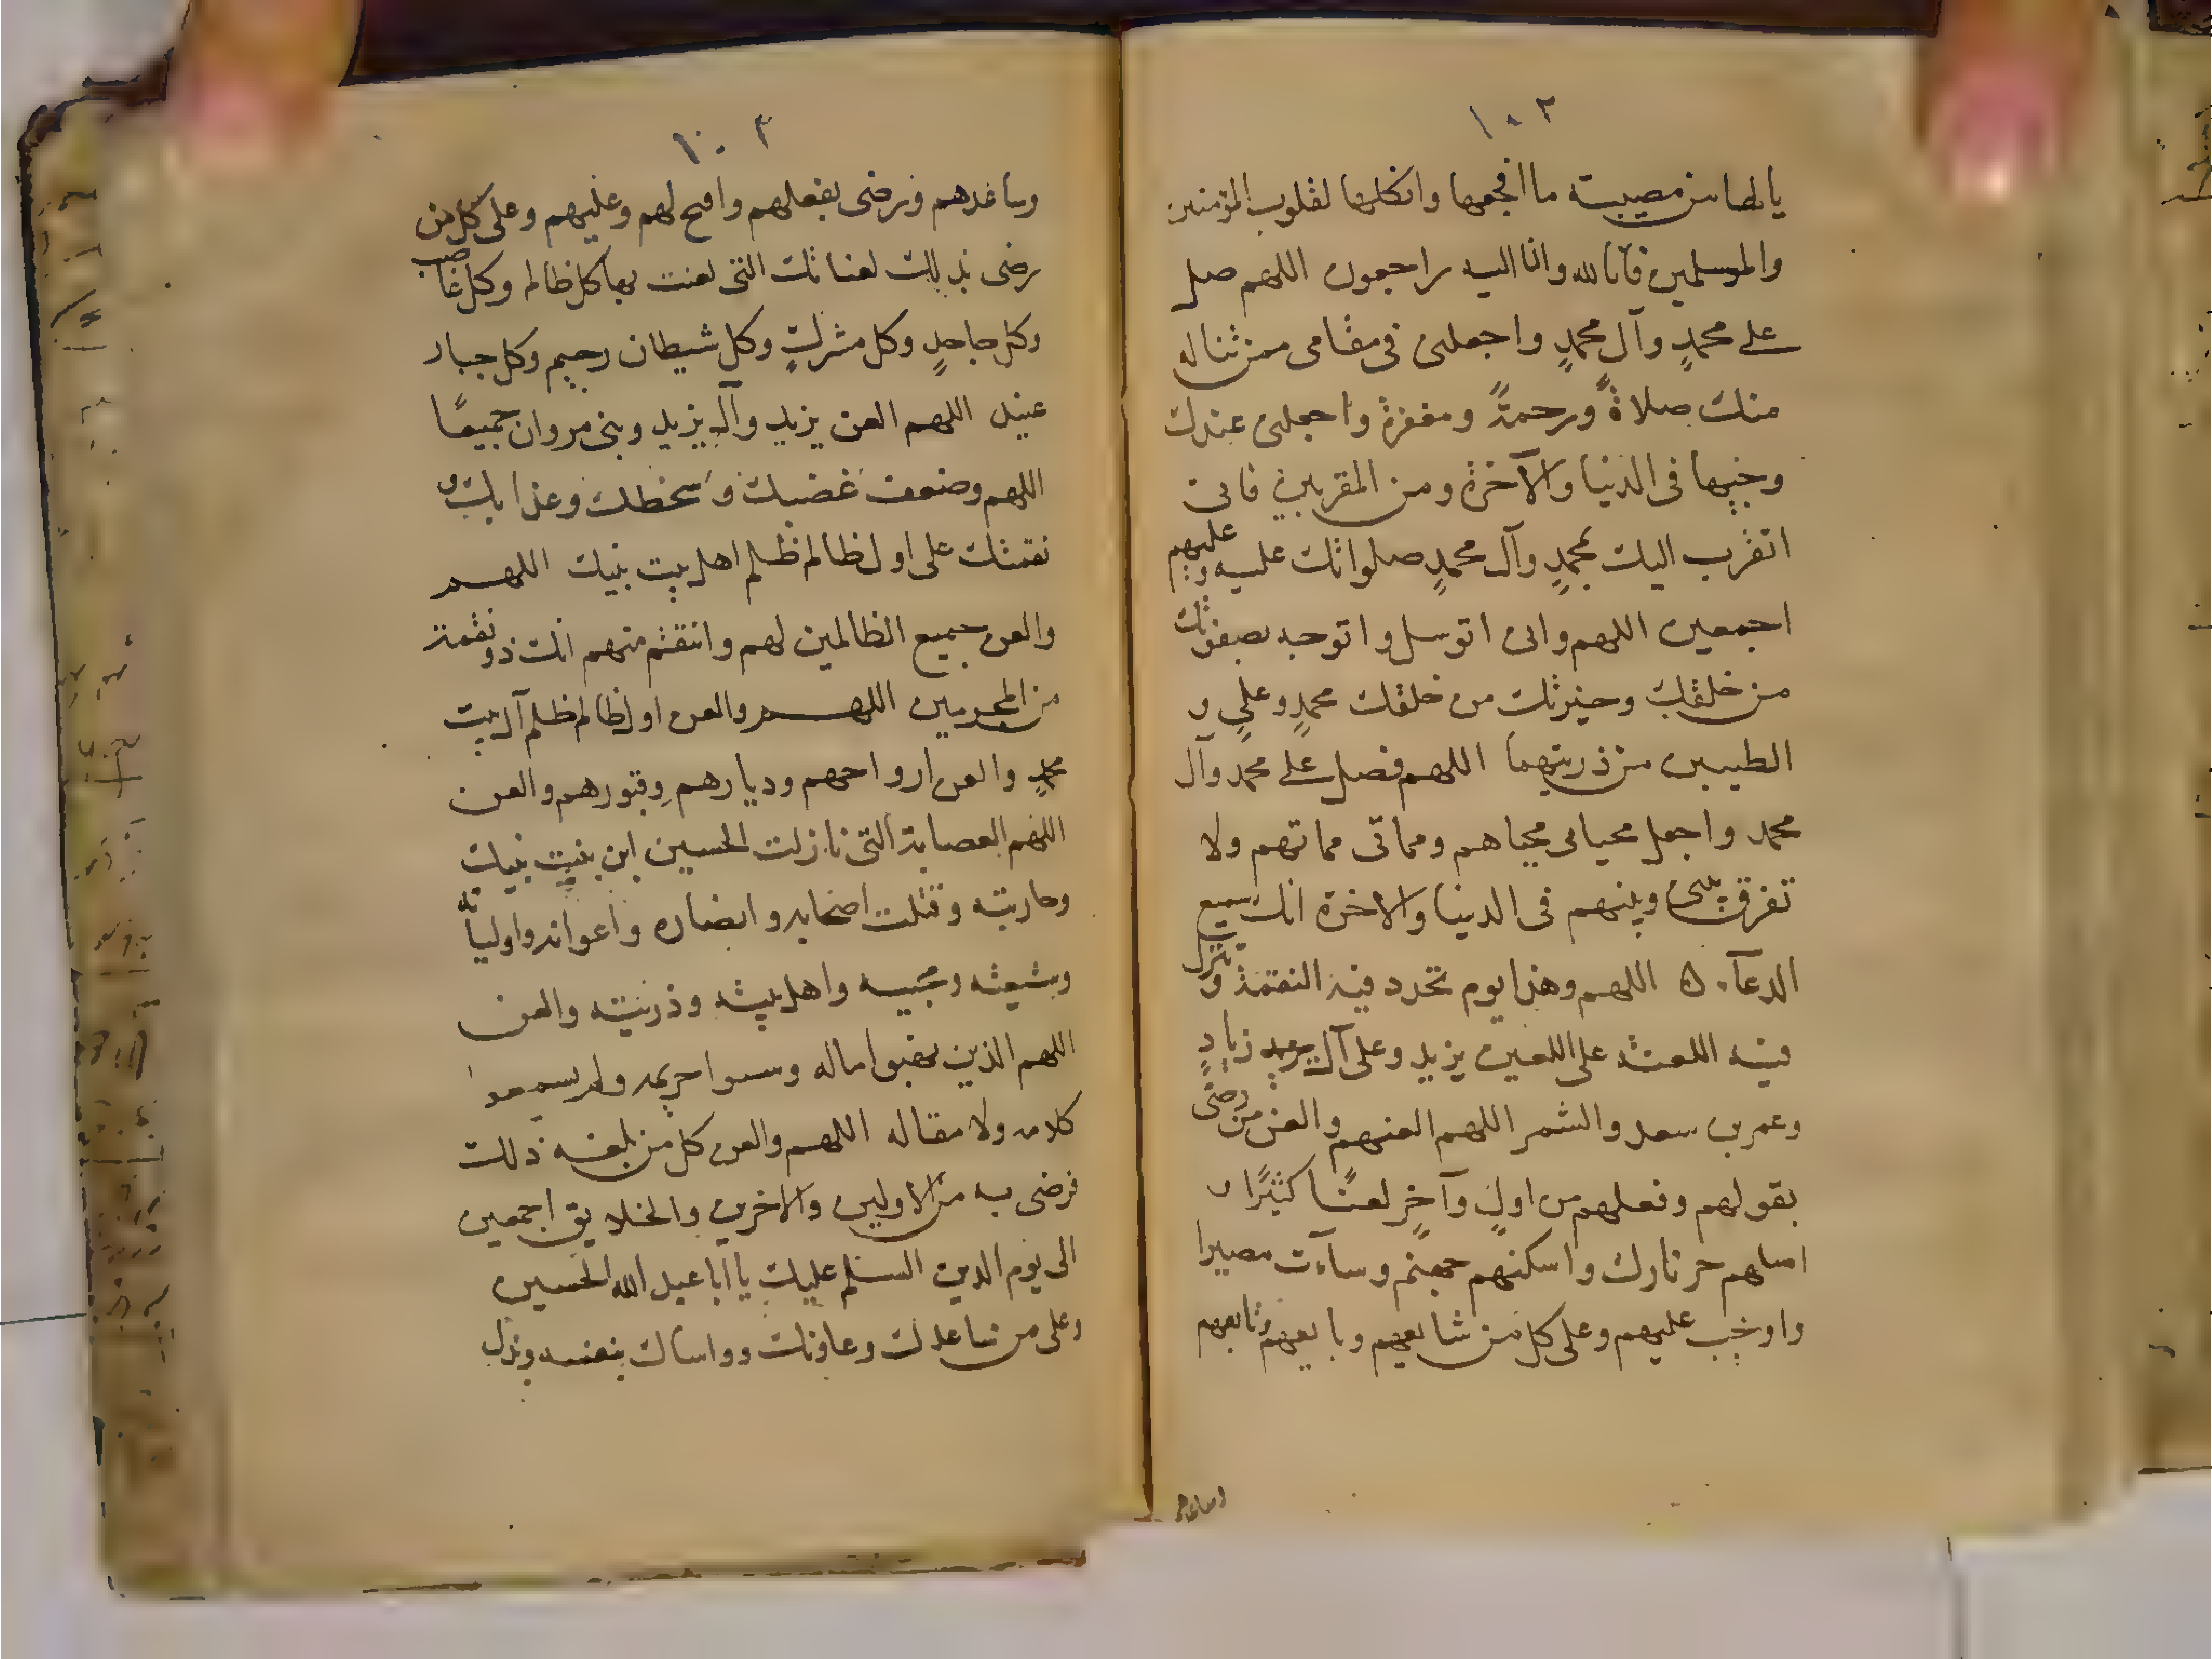 ١٠٢
يا لها من مصيبة ما افجعها وانكاها لقلوب المؤمنين
والمسلمين فانا لله وانا اليه راجعون اللهم صل
على محمدٍ وآل محمدٍ واجعلنى فى مقامى ممن تناله
منك صلاةً ورحمةً ومغفرة واجعلنى عندك
وجيها فى الدنيا والآخرة ومن المقربين فانى
اتقرب اليك بمحمدٍ وآل محمدٍ صلواتك عليه وعليهم
اجمعين اللهم وانى اتوسل واتوجه بصفوتك
من خلقك وخيرتك من خلقك محمدٍ وعلىٍ و
الطيبين من ذريتهما اللهم فصل على محمد وآل
محمد واجعل محياى محياهم ومماتى مماتهم ولا
تفرق بينى وبينهم فى الدنيا والاخرة انك سميع
الدعآء ه اللهم وهذا يوم تجدد فيه النقمة وتنزل
فيه اللعنة على اللعين يزيد وعلى آل يزيد زيادٍ
وعمر بن سعد والشمر اللهم العنهم والعن من رضى
بقولهم وفعلهم من اولٍ وآخرٍ لعنًا كثيرًا و
اصلهم حر نارك واسكنهم جهنم وسآءت مصيرا
واوجب عليهم وعلى كل من شايعهم وبايعهم وتابعهم
وساعدهم
١٠٣
وساعدهم ورضى بفعلهم وافتح لهم وعليهم وعلى كل من
رضى بذلك لعناتك التى لعنت بها كل ظالم وكل غاصب
وكل جاحدٍ وكل مشركٍ وكل شيطان رجيم وكل جبار
عنيد اللهم العن يزيد وآل يزيد وبنى مروان جميعًا
اللهم وضعف غضبك وسخطك وعذابك و
نقمتك على اول ظالم ظلم اهل بيت نبيك اللهم
والعن جميع الظالمين لهم وانتقم منهم انك ذو نقمة
من المجرمين اللهم والعن اول ظالم ظلم آل بيت
محمدٍ والعن ارواحهم وديارهم وقبورهم والعن
اللهم العصابة التى نازلت الحسين ابن بنت نبيك
وحاربته وقتلت اصحابه وانصاره واعوانه واوليائه
وشيعته ومحبيه واهل بيته وذريته والعن
اللهم الذين نهبوا ماله وسبوا حريمه ولم يسمعوا
كلامه ولا مقاله اللهم والعن كل من بلغه ذلك
فرضى به من الاولين والاخرين والخلايق اجمعين
الى يوم الدين السلم عليك يا ابا عبد الله الحسين
وعلى من ساعدك وعاونك وواساك بنفسه وبذل